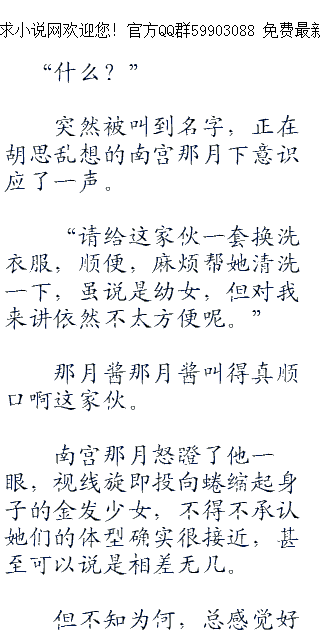 求小说网欢迎您！官方QQ群59903088 免费最新
“什么？”
突然被叫到名字，正在
胡思乱想的南宫那月下意识
应了一声。
“请给这家伙一套换洗
衣服，顺便，麻烦帮她清洗
一下，虽说是幼女，但对我
来讲依然不太方便呢。”
那月酱那月酱叫得真顺
口啊这家伙。
南宫那月怒瞪了他一
眼，视线旋即投向蜷缩起身
子的金发少女，不得不承认
她们的体型确实很接近，甚
至可以说是相差无几。
但不知为何，总感觉好